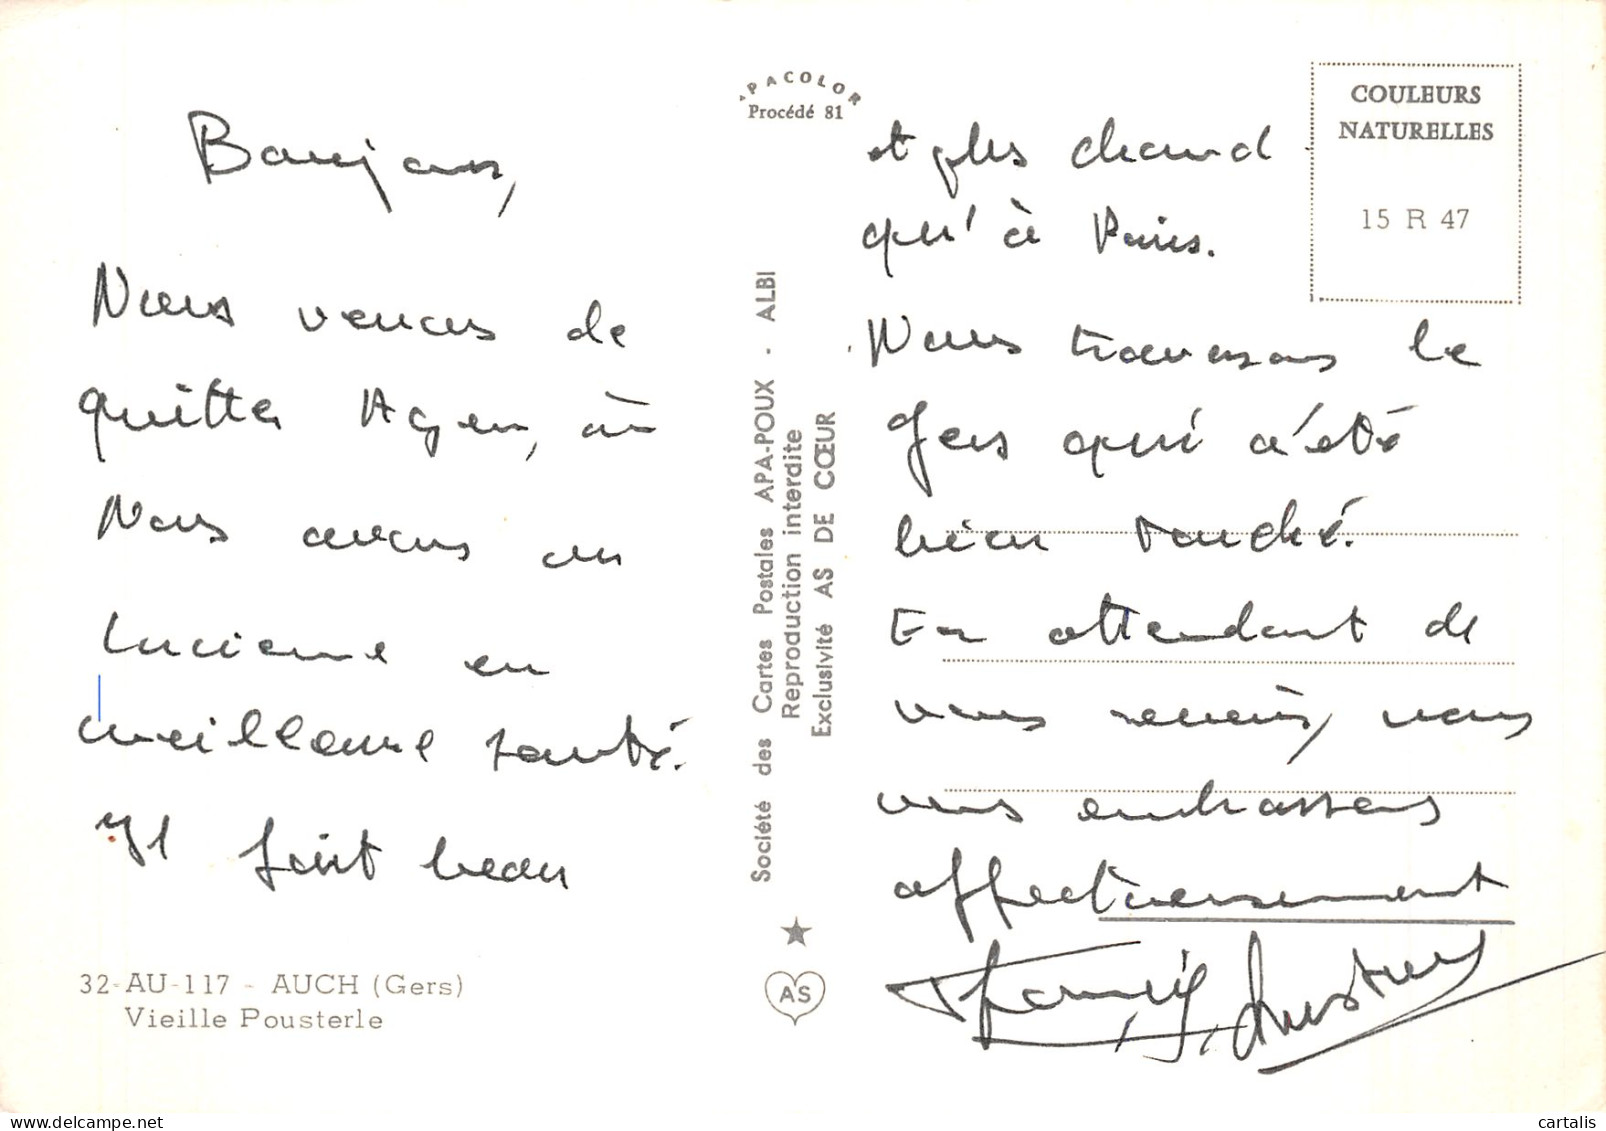 Bonjour,
Nous venons de
quitter Agen, où
Nous avons vu
Lucienne en
meilleure santé.
Il fait beau
32-AU-117 - AUCH (Gers)
Vieille Pousterle
APACOLOR
Procédé 81
Société des Cartes Postales APA-POUX - ALBI
Reproduction interdite
Exclusivité AS DE CŒUR
AS
COULEURS
NATURELLES
15 R 47
et plus chaud
qu'à Paris.
Nous traversons le
Gers qui a été
bien touché.
En attendant de
vous revoir, nous
vous embrassons
affectueusement
cartalis.com